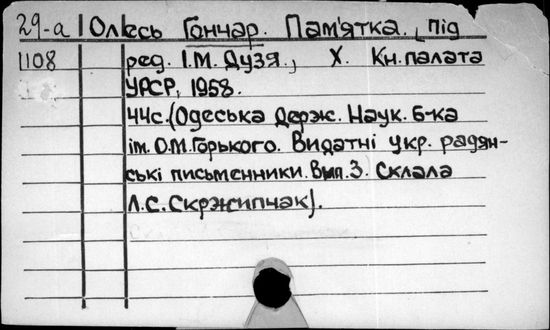 29-а Олесь Гончар. Пам'ятка. Під
1108 ред. І.М. Дузя., Х. Кн.палата
УРСР, 1958.
44с.(Одеська Держ. Наук. б-ка
ім. О.М.Горького. Видатні укр. радян-
ські письменники. Вип.3. Склала
Л.С.Скржипчак).